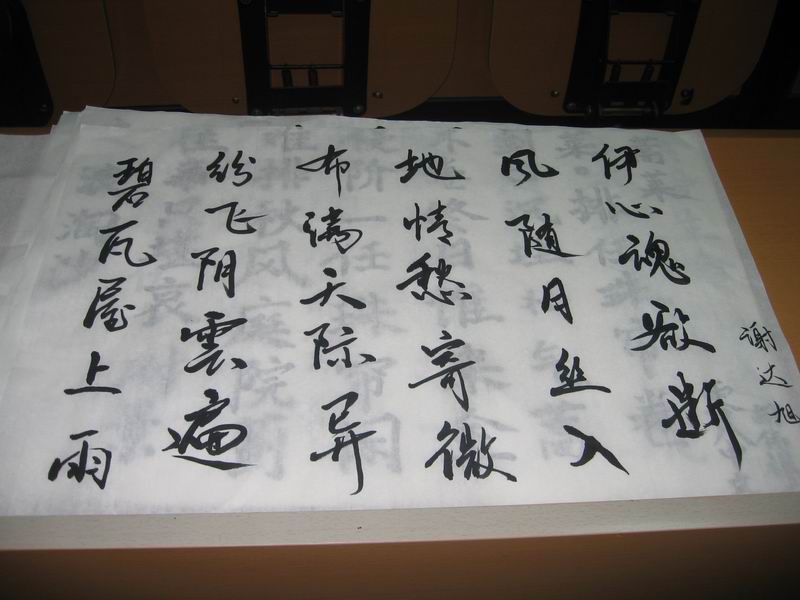 碧瓦屋上雨
纷飞阴雲遍
布满天际异
地情愁寄微
风随月丝入
伊心魂欲断
谢达旭